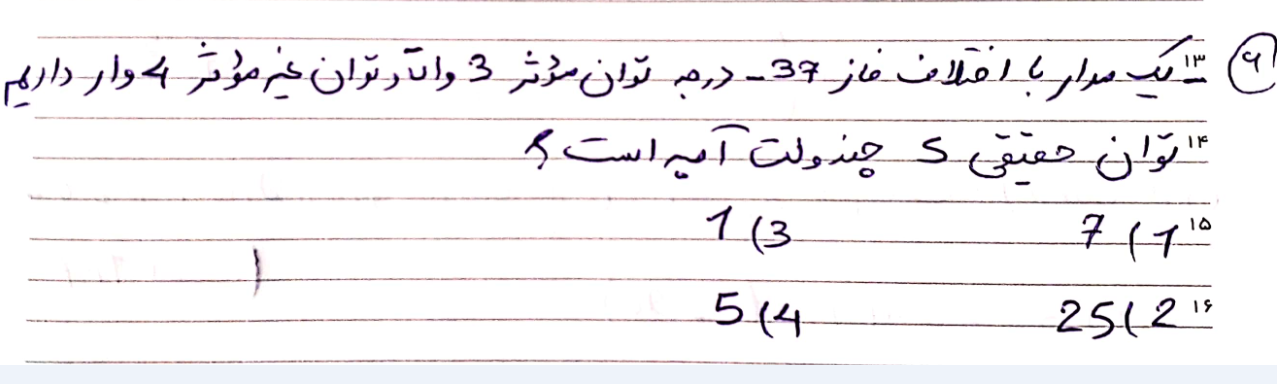 ۹ یک مدار با اختلاف فاز 37- درجه توان مؤثر 3 وات و توان غیر مؤثر 4 وار داریم
۱۳
۱۴ توان حقیقی S چند ولت آمپر است؟
۱۵ 1) 7 3) 1
۱۶ 2) 25 4) 5